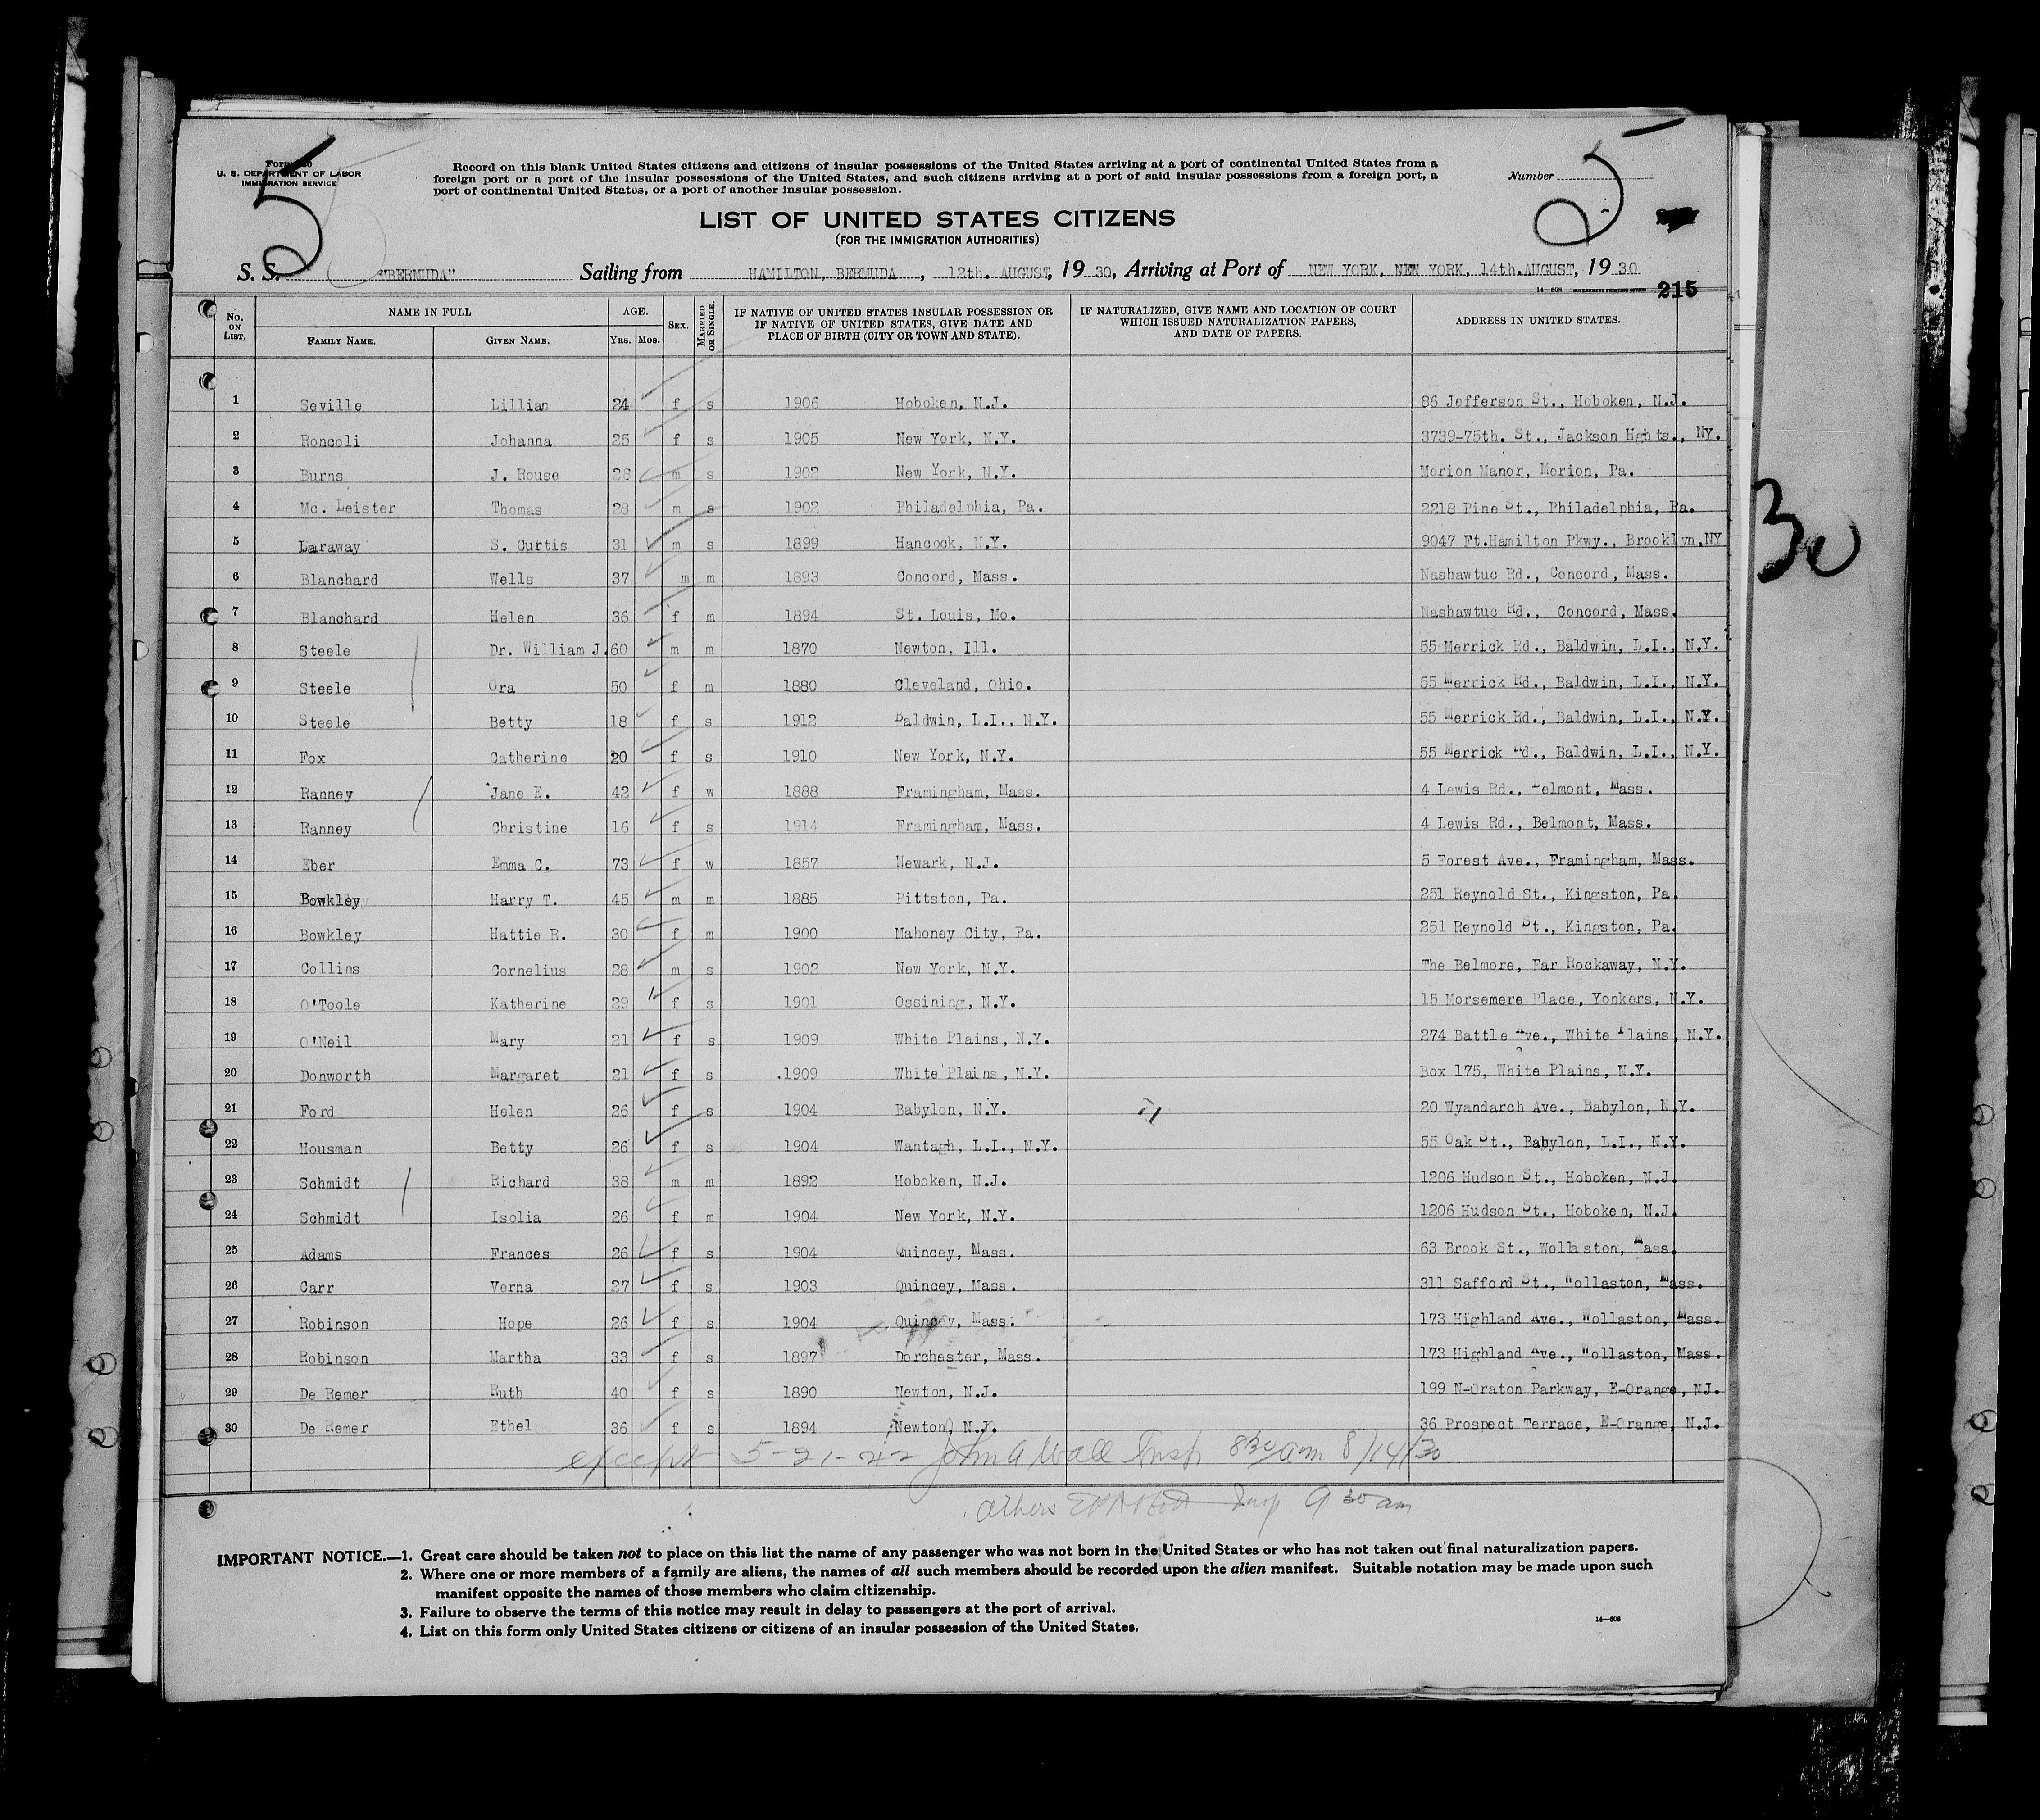 5
5
Form 630
U. S. DEPARTMENT OF LABOR
IMMIGRATION SERVICE
Record on this blank United States citizens and citizens of insular possessions of the United States arriving at a port of continental United States from a
foreign port or a port of the insular possessions of the United States, and such citizens arriving at a port of said insular possessions from a foreign port, a
port of continental United States, or a port of another insular possession.
Number
LIST OF UNITED STATES CITIZENS
(FOR THE IMMIGRATION AUTHORITIES)
S. S. "BERMUDA" Sailing from HAMILTON, BERMUDA, 12th. AUGUST, 1930, Arriving at Port of NEW YORK, NEW YORK, 14th.AUGUST, 1930
14—608 GOVERNMENT PRINTING OFFICE 215
No. ON LIST. NAME IN FULL FAMILY NAME. GIVEN NAME. AGE. YRS. MOS. SEX. MARRIED OR SINGLE. IF NATIVE OF UNITED STATES INSULAR POSSESSION OR IF NATIVE OF UNITED STATES, GIVE DATE AND PLACE OF BIRTH (CITY OR TOWN AND STATE). IF NATURALIZED, GIVE NAME AND LOCATION OF COURT WHICH ISSUED NATURALIZATION PAPERS, AND DATE OF PAPERS. ADDRESS IN UNITED STATES.
1 Seville Lillian 24 f s 1906 Hoboken, N.J. 86 Jefferson St., Hoboken, N.J.
2 Roncoli Johanna 25 f s 1905 New York, N.Y. 3739-75th. St., Jackson Hghts., NY.
3 Burns J. Rouse 28 m s 1902 New York, N.Y. Merion Manor, Merion, Pa.
4 Mc. Leister Thomas 28 m s 1902 Philadelphia, Pa. 2218 Pine St., Philadelphia, Pa.
5 Laraway S. Curtis 31 m s 1899 Hancock, N.Y. 9047 Ft.Hamilton Pkwy., Brooklyn,NY
6 Blanchard Wells 37 m m 1893 Concord, Mass. Nashawtuc Rd., Concord, Mass.
7 Blanchard Helen 36 f m 1894 St. Louis, Mo. Nashawtuc Rd., Concord, Mass.
8 Steele Dr. William J. 60 m m 1870 Newton, Ill. 55 Merrick Rd., Baldwin, L.I., N.Y.
9 Steele Ora 50 f m 1880 Cleveland, Ohio. 55 Merrick Rd., Baldwin, L.I., N.Y.
10 Steele Betty 18 f s 1912 Baldwin, L.I., N.Y. 55 Merrick Rd., Baldwin, L.I., N.Y.
11 Fox Catherine 20 f s 1910 New York, N.Y. 55 Merrick Rd., Baldwin, L.I., N.Y.
12 Ranney Jane E. 42 f w 1888 Framingham, Mass. 4 Lewis Rd., Belmont, Mass.
13 Ranney Christine 16 f s 1914 Framingham, Mass. 4 Lewis Rd., Belmont, Mass.
14 Eber Emma C. 73 f w 1857 Newark, N.J. 5 Forest Ave., Framingham, Mass.
15 Bowkley Harry T. 45 m m 1885 Pittston, Pa. 251 Reynold St., Kingston, Pa.
16 Bowkley Hattie R. 30 f m 1900 Mahoney City, Pa. 251 Reynold St., Kingston, Pa.
17 Collins Cornelius 28 m s 1902 New York, N.Y. The Belmore, Far Rockaway, N.Y.
18 O'Toole Katherine 29 f s 1901 Ossining, N.Y. 15 Morsemere Place, Yonkers, N.Y.
19 O'Neil Mary 21 f s 1909 White Plains, N.Y. 274 Battle Ave., White Plains, N.Y.
20 Donworth Margaret 21 f s 1909 White Plains, N.Y. Box 175, White Plains, N.Y.
21 Ford Helen 26 f s 1904 Babylon, N.Y. 20 Wyandarch Ave., Babylon, N.Y.
22 Housman Betty 26 f s 1904 Wantagh, L.I., N.Y. 55 Oak St., Babylon, L.I., N.Y.
23 Schmidt Richard 38 m m 1892 Hoboken, N.J. 1206 Hudson St., Hoboken, N.J.
24 Schmidt Isolia 26 f m 1904 New York, N.Y. 1206 Hudson St., Hoboken, N.J.
25 Adams Frances 26 f s 1904 Quincey, Mass. 63 Brook St., Wollaston, Mass.
26 Carr Verna 27 f s 1903 Quincey, Mass. 311 Safford St., Wollaston, Mass.
27 Robinson Hope 26 f s 1904 Quincey, Mass. 173 Highland Ave., Wollaston, Mass.
28 Robinson Martha 33 f s 1897 Dorchester, Mass. 173 Highland Ave., Wollaston, Mass.
29 De Remer Ruth 40 f s 1890 Newton, N.J. 199 N-Oraton Parkway, E-Orange, NJ.
30 De Remer Ethel 36 f s 1894 Newton, N.J. 36 Prospect Terrace, E-Orange, N.J.
except 5-21-22 John A Wall Insp 830am 8/14/30
others Insp 930am
IMPORTANT NOTICE.—1. Great care should be taken not to place on this list the name of any passenger who was not born in the United States or who has not taken out final naturalization papers.
2. Where one or more members of a family are aliens, the names of all such members should be recorded upon the alien manifest. Suitable notation may be made upon such
manifest opposite the names of those members who claim citizenship.
3. Failure to observe the terms of this notice may result in delay to passengers at the port of arrival.
4. List on this form only United States citizens or citizens of an insular possession of the United States.
14—608
30